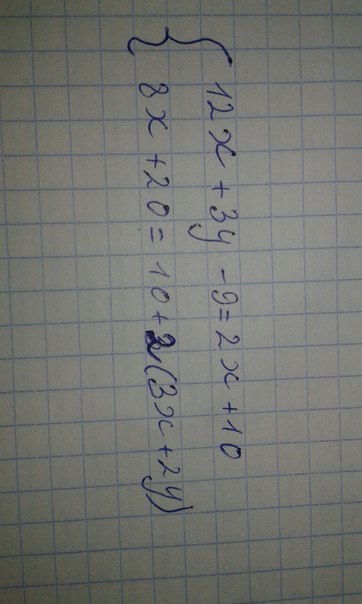 12x + 3y - 9 = 2x + 10
8x + 20 = 10 + 2(3x + 2y)